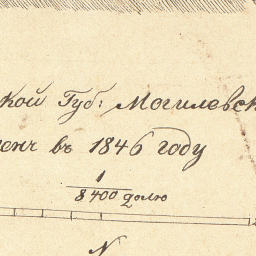 ской Губ: Могилевск
ен въ 1846 году
1
8400 долю
N